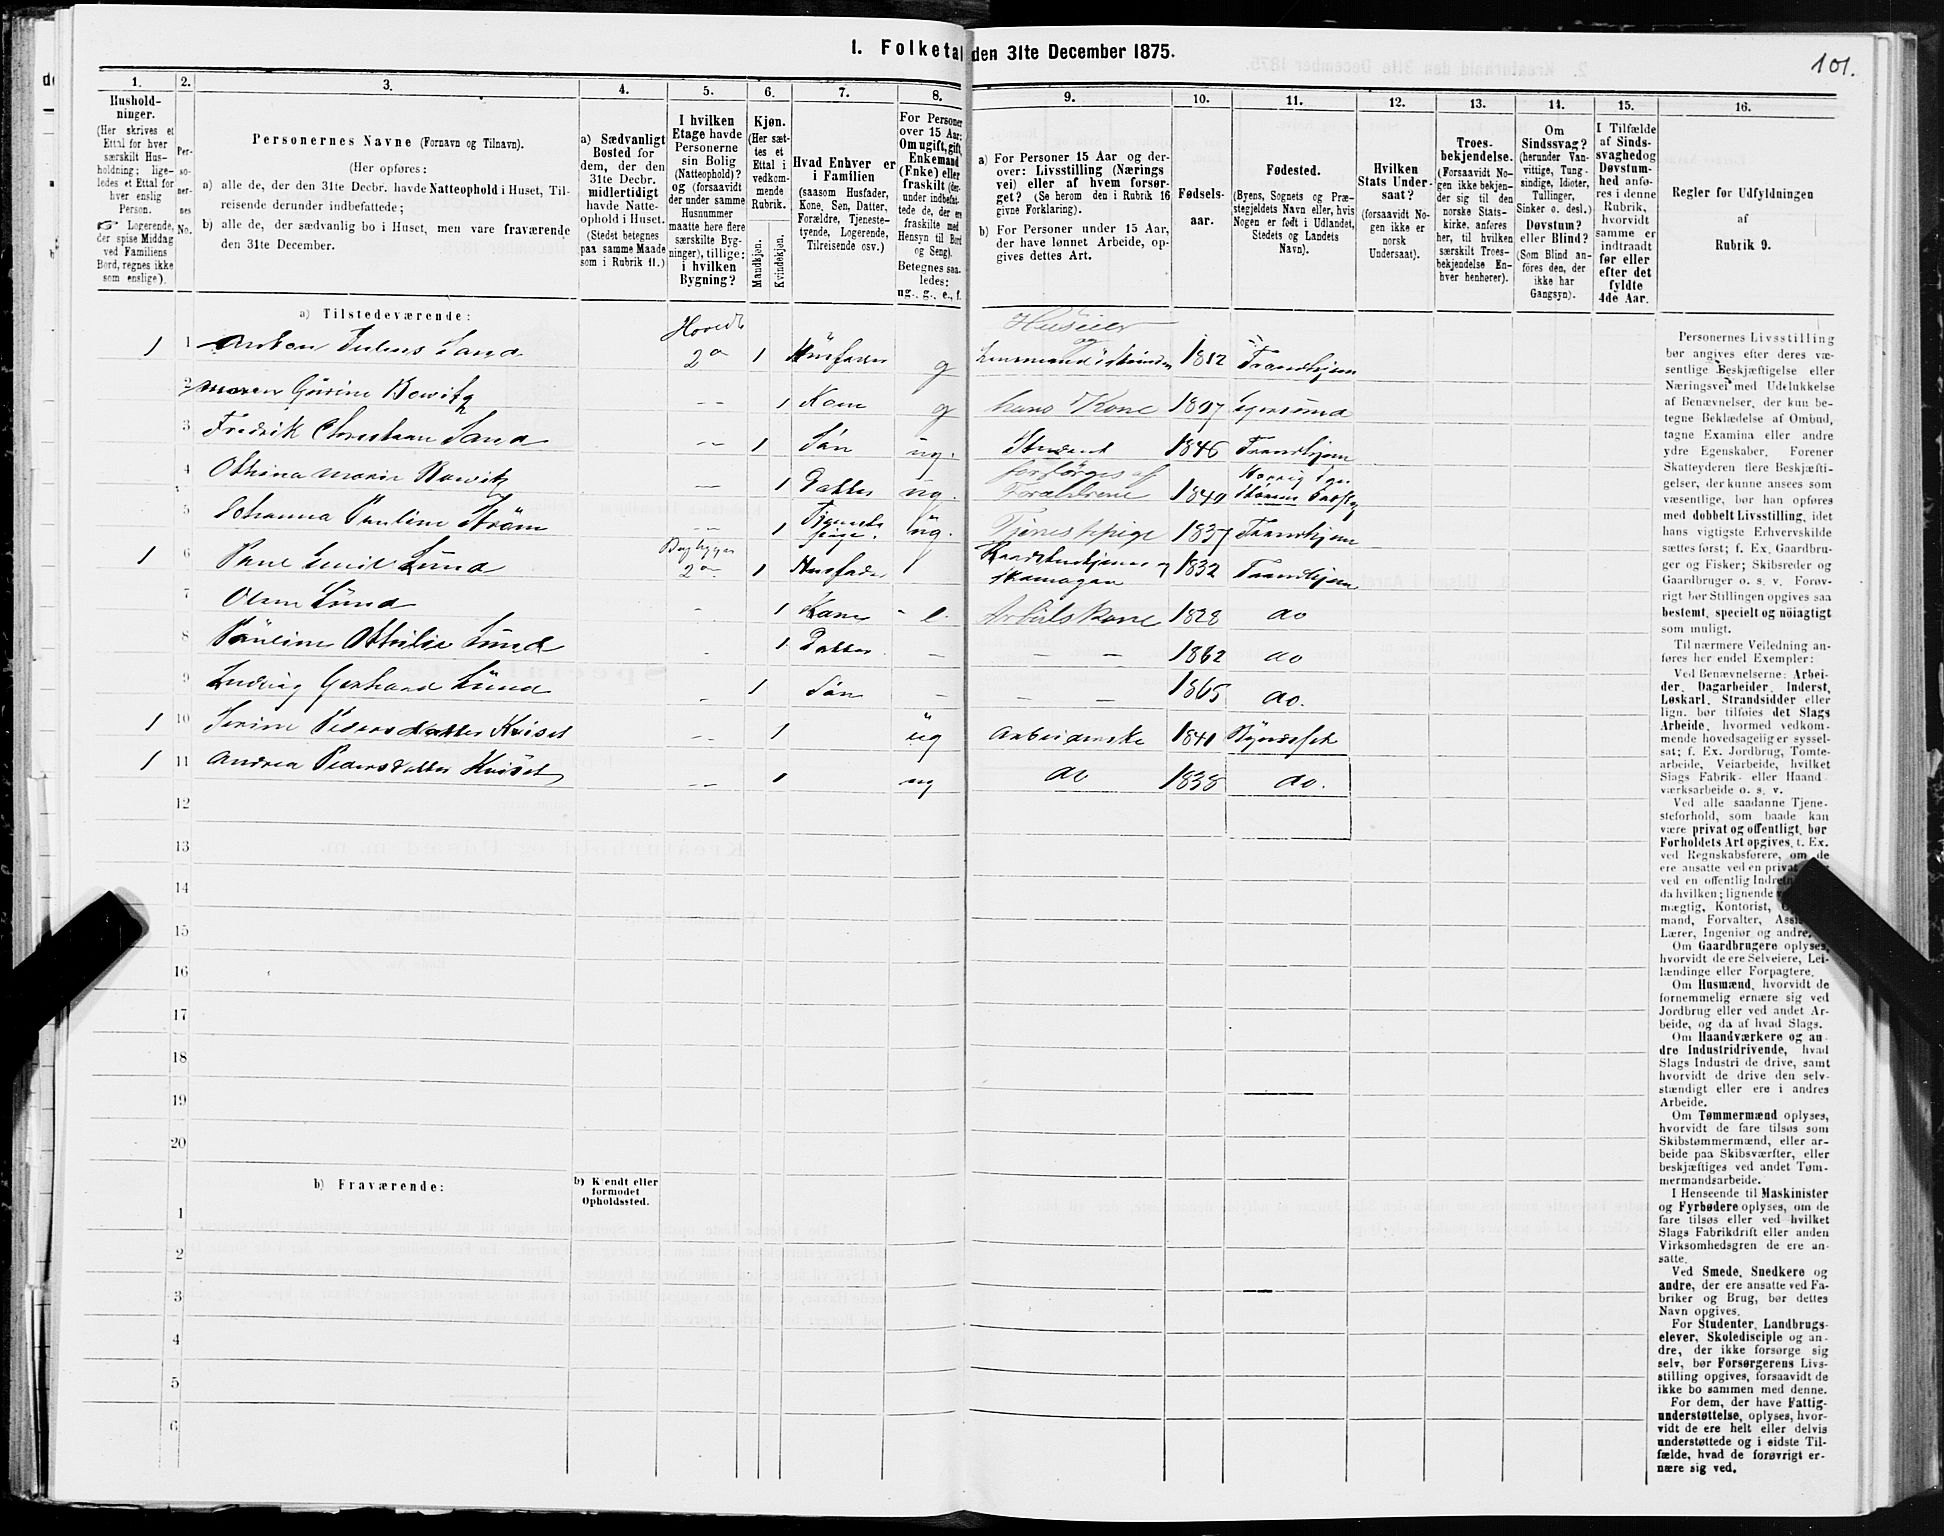 1. Folketal den 31te December 1875.
101.
1.
Hushold-
ninger.
(Her skrives et
Ettal for hver
særskilt Hus-
holdning; lige-
ledes et Ettal for
hver enslig
Person.
☞ Logerende,
der spise Middag
ved Familiens
Bord, regnes ikke
som enslige).
2.
Per-
so-
ner-
nes
No.
3.
Personernes Navne (Fornavn og Tilnavn).
(Her opføres:
a) alle de, der den 31te Decbr. havde Natteophold i Huset, Til-
reisende derunder indbefattede;
b) alle de, der sædvanlig bo i Huset, men vare fraværende
den 31te December.
4.
a) Sædvanligt
Bosted for
dem, der den
31te Decbr.
midlertidigt
havde Natte-
ophold i Huset.
(Stedet betegnes
paa samme Maade
som i Rubrik 11.)
5.
I hvilken
Etage havde
Personerne
sin Bolig
(Natteophold)?
og (forsaavidt
der under samme
Husnummer
maatte høre flere
særskilte Byg-
ninger), tillige:
i hvilken
Bygning?
6.
Kjøn.
(Her sæt-
tes et
Ettal i
vedkom-
mende
Rubrik.
Mandkjøn.
Kvindekjøn.
7.
Hvad Enhver er
i Familien
(saasom Husfader,
Kone, Søn, Datter,
Forældre, Tjeneste-
tyende, Logerende,
Tilreisende osv.)
8.
For Personer
over 15 Aar:
Om ugift, gift,
Enkemand
(Enke) eller
fraskilt (der-
under indbefat-
tede de, der ere
fraskilte med
Hensyn til Bord
og Seng).
Betegnes saa-
ledes:
ug., g., e., f.
9.
a) For Personer 15 Aar og der-
over: Livsstilling (Nærings
vei) eller af hvem forsør-
get? (Se herom den i Rubrik 16
givne Forklaring).
b) For Personer under 15 Aar,
der have lønnet Arbeide, op-
gives dettes Art.
10.
Fødsels-
aar.
11.
Fødested.
(Byens, Sognets og Præ-
stegjeldets Navn eller, hvis
Nogen er født i Udlandet,
Stedets og Landets
Navn).
12.
Hvilken
Stats Under-
saat?
(forsaavidt No-
gen ikke er
norsk
Undersaat).
13.
Troes-
bekjendelse.
(Forsaavidt No-
gen ikke bekjen-
der sig til den
norske Stats-
kirke, anføres
her, til hvilken
særskilt Troes-
bekjendelse En-
hver henhører).
14.
Om
Sindssvag?
(herunder Van-
vittige, Tung-
sindige, Idioter,
Tullinger,
Sinker o. desl.)
Døvstum?
eller Blind?
(Som Blind an-
føres den, der
ikke har
Gangsyn).
15.
I Tilfælde
af Sinds-
svaghed og
Døvstum-
hed anfø-
res i denne
Rubrik,
hvorvidt
samme er
indtraadt
før eller
efter det
fyldte
4de Aar.
16.
Regler for Udfyldningen
af
Rubrik 9.
a) Tilstedeværende:
1 1 Anton Julius Sand Hovedb 2den 1 Husfader g Huseier og Lensmand i Strinden 1812 Trondhjem
2 Maren Gurine Bowitz -- 1 Kone g hans Kone 1807 Egersund
3 Fredrik Christian Sand -- 1 Søn ug. Student 1846 Trondhjem
4 Othina Marie Bowitz -- 1 Datter ug. forsørges af Forældrene 1849
5 Johanna Pauline Strøm -- 1 Tjenestepige. ug. Tjenestepige 1837 Trondhjem
1 6 Paul Emil Lund Bagbygn 2den 1 Husfader 1832 Trondhjem
7 Lund 1 Kone e. Arbeidskone 1828 do
8 Pauline Othilie Lund 1 Datter – – – 1862 do
9 Ludvig Gerhard Lund 1 Søn – – – 1865 do.
1 10 Serine Pedersdatter Kviset -- 1 ug Arbeiderske 1841 Bynesset
1 11 Andrea Pedersdatter Kviset -- 1 ug do 1838 do.
12
13
14
15
16
17
18
19
20
b) Fraværende:
b) Kjendt eller
formodet
Opholdssted.
1
2
3
4
5
6
Personernes Livsstilling
bør angives efter deres væ-
sentlige Beskjæftigelse eller
Næringsvei med Udelukkelse
af Benævnelser, der kun be-
tegne Beklædelse af Ombud,
tagne Examina eller andre
ydre Egenskaber. Forener
Skatteyderen flere Beskjæfti-
gelser, der kunne ansees som
væsentlige, bør han opføres
med dobbelt Livsstilling, idet
hans vigtigste Erhvervskilde
sættes først; f. Ex. Gaardbru-
ger og Fisker; Skibsreder og
Gaardbruger o. s. v. Forøv-
rigt bør Stillingen opgives saa
bestemt, specielt og nöiagtigt
som muligt.
Til nærmere Veiledning an-
føres her endel Exempler:
Ved Benævnelserne: Arbei-
der, Dagarbeider, Inderst,
Løskarl, Strandsidder eller
lign. bør tilføies det Slags
Arbeide, hvormed vedkom-
mende hovedsagelig er syssel-
sat; f. Ex. Jordbrug, Tomte-
arbeide, Veiarbeide, hvilket
Slags Fabrik- eller Haand-
værksarbeide o. s. v.
Ved alle saadanne Tjene-
steforhold, som baade kan
være privat og offentligt, bør
Forholdets Art opgives, t. Ex.
ved Regnskabsførere, om de
ere ansatte ved en privat
ved en offentlig
da hvilken; lignende
mægtig, Kontorist,
mand, Forvalter,
Lærer, Ingeniør og andre.
Om Gaardbrugere oplyses,
hvorvidt de ere Selveiere, Lei-
lændinge eller Forpagtere.
Om Husmænd, hvorvidt de
fornemmelig ernære sig ved
Jordbrug eller ved andet Ar-
beide, og da af hvad Slags.
Om Haandværkere og an-
dre Industridrivende, hvad
Slags Industri de drive, samt
hvorvidt de drive den selv-
stændigt eller ere i andres
Arbeide.
Om Tømmermænd oplyses,
hvorvidt de fare tilsøs som
Skibstømmermænd, eller ar-
beide paa Skibsværfter, eller
beskjæftiges ved andet Tøm-
mermandsarbeide.
I Henseende til Maskinister
og Fyrbødere oplyses, om de
fare tilsøs eller ved hvilket
Slags Fabrikdrift eller anden
Virksomhedsgren de ere an-
satte.
Ved Smede, Snedkere og
andre, der ere ansatte ved Fa-
briker og Brug, bør dettes
Navn opgives.
For Studenter, Landbrugs-
elever, Skoledisciple og an-
dre, der ikke forsørge sig
selv, bør Forsørgerens Livs-
stilling opgives, forsaavidt de
ikke bo sammen med denne.
For dem, der have Fattig-
understøttelse, oplyses, hvor-
vidt de ere helt eller delvis
understøttede og i sidste Til-
fælde, hvad de forøvrigt er-
nære sig ved.